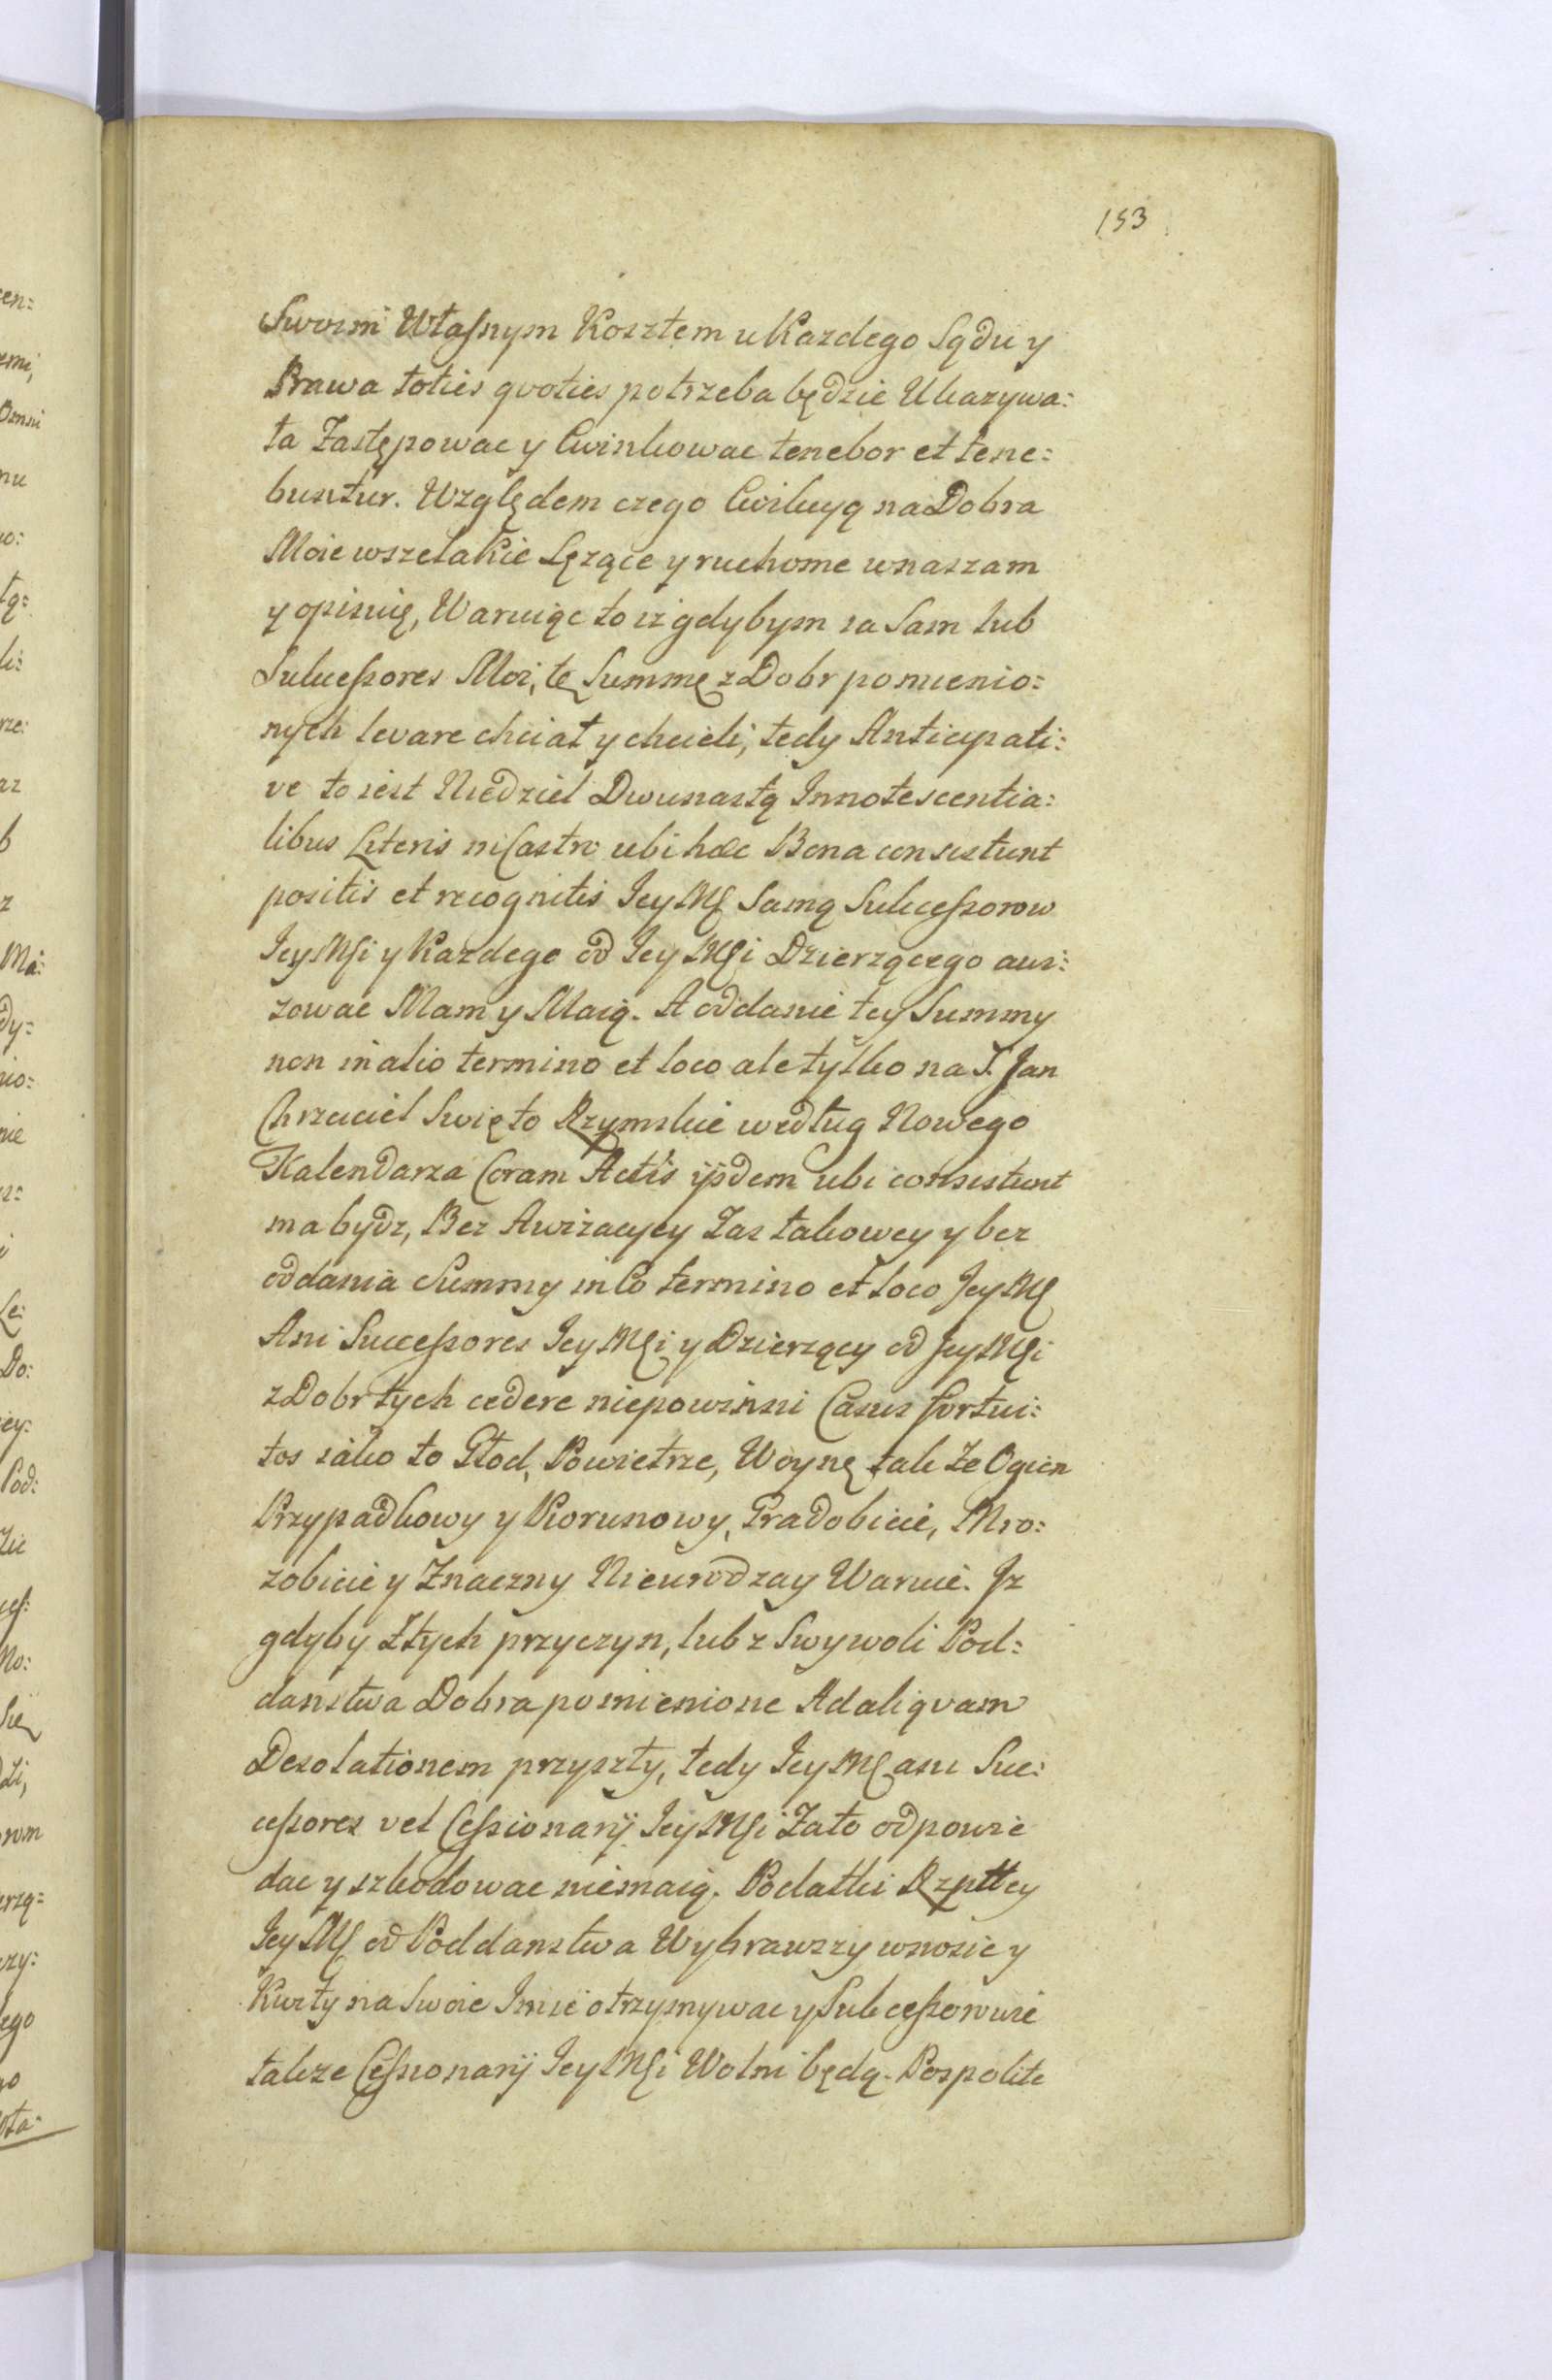 153
Swoim Własnym Kosztem u Kazdego Sądu y
Prawa toties qvoties potrzeba będzie Ukazywa:
ła Zastępowac y Ewinkowac tenebor et tene:
buntur. Względem czego Ewikcyą na Dobra
Moie wszelakie Lęzące y ruchome wnaszam
y opisuię, Waruiąc to iż gdybym ia Sam lub
Sukceßores Moi, tę Summę z Dobr pomienio:
nych levare chciał y chcieli, tedy Anticypati:
ve to iest Niedziel Dwunastą Innotescentia:
libus Literis in Castro ubi hæc Bona consistunt
positis et recognitis Jey Mć Samą Sukceßorow
Jey Mći y Kazdego od Jey Mći Dzierzącego awi:
zowac Mam y Maią. A oddanie tey Summy
non in alio termino et loco ale tylko na S. Jan
Chrzciciel Swięto Rzymskie według Nowego
Kalendarza Coram Actis ijsdem ubi consistunt
ma bydz, Bez Awizacyey Zas takowey y bez
oddania Summy in Eo termino et loco Jey Mć
Ani Succeßores Jey Mći y Dzierzący od Jey Mći
z Dobr tych cedere niepowinni Casus fortui:
tos iako to Głod, Powietrze, Woynę tak że Ogien
Przypadkowy y Piorunowy, Gradobicie, Mro:
zobicie y Znaczny Nieurodzay Waruie. Iz
gdyby Ztych przyczyn, lub z Swywoli Pod:
danstwa Dobra pomienione Ad aliqvam
Desolationem przyszły, tedy Jey Mć ani Suc:
ceßores vel Ceßionarij Jey Mći Zato odpowie
dac y szkodowac niemaią. Podatki Rzpttey
Jey Mć od Poddanstwa Wybrawszy wnosic y
Kwity na Swoie Imie otrzymywac y Sukceßorowie
takze Ceßionarij Jey Mći Wolni będą. Pospolite